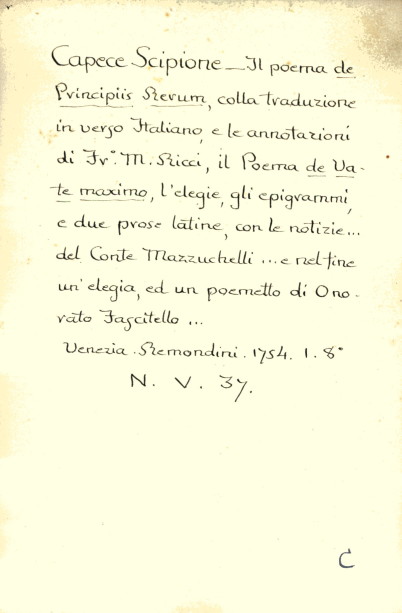 Capece Scipione — Il poema de
Principiis Rerum, colla traduzione
in verso Italiano, e le annotazioni
di Fr°. M. Ricci, il Poema de Va-
te maximo, l'elegie, gli epigrammi,
e due prose latine, con le notizie...
del Conte Mazzuchelli ... e nel fine
un'elegia, ed un poemetto di Ono-
rato Fascitello ...
Venezia. Remondini. 1754. 1. 8°
N. V. 37.
C